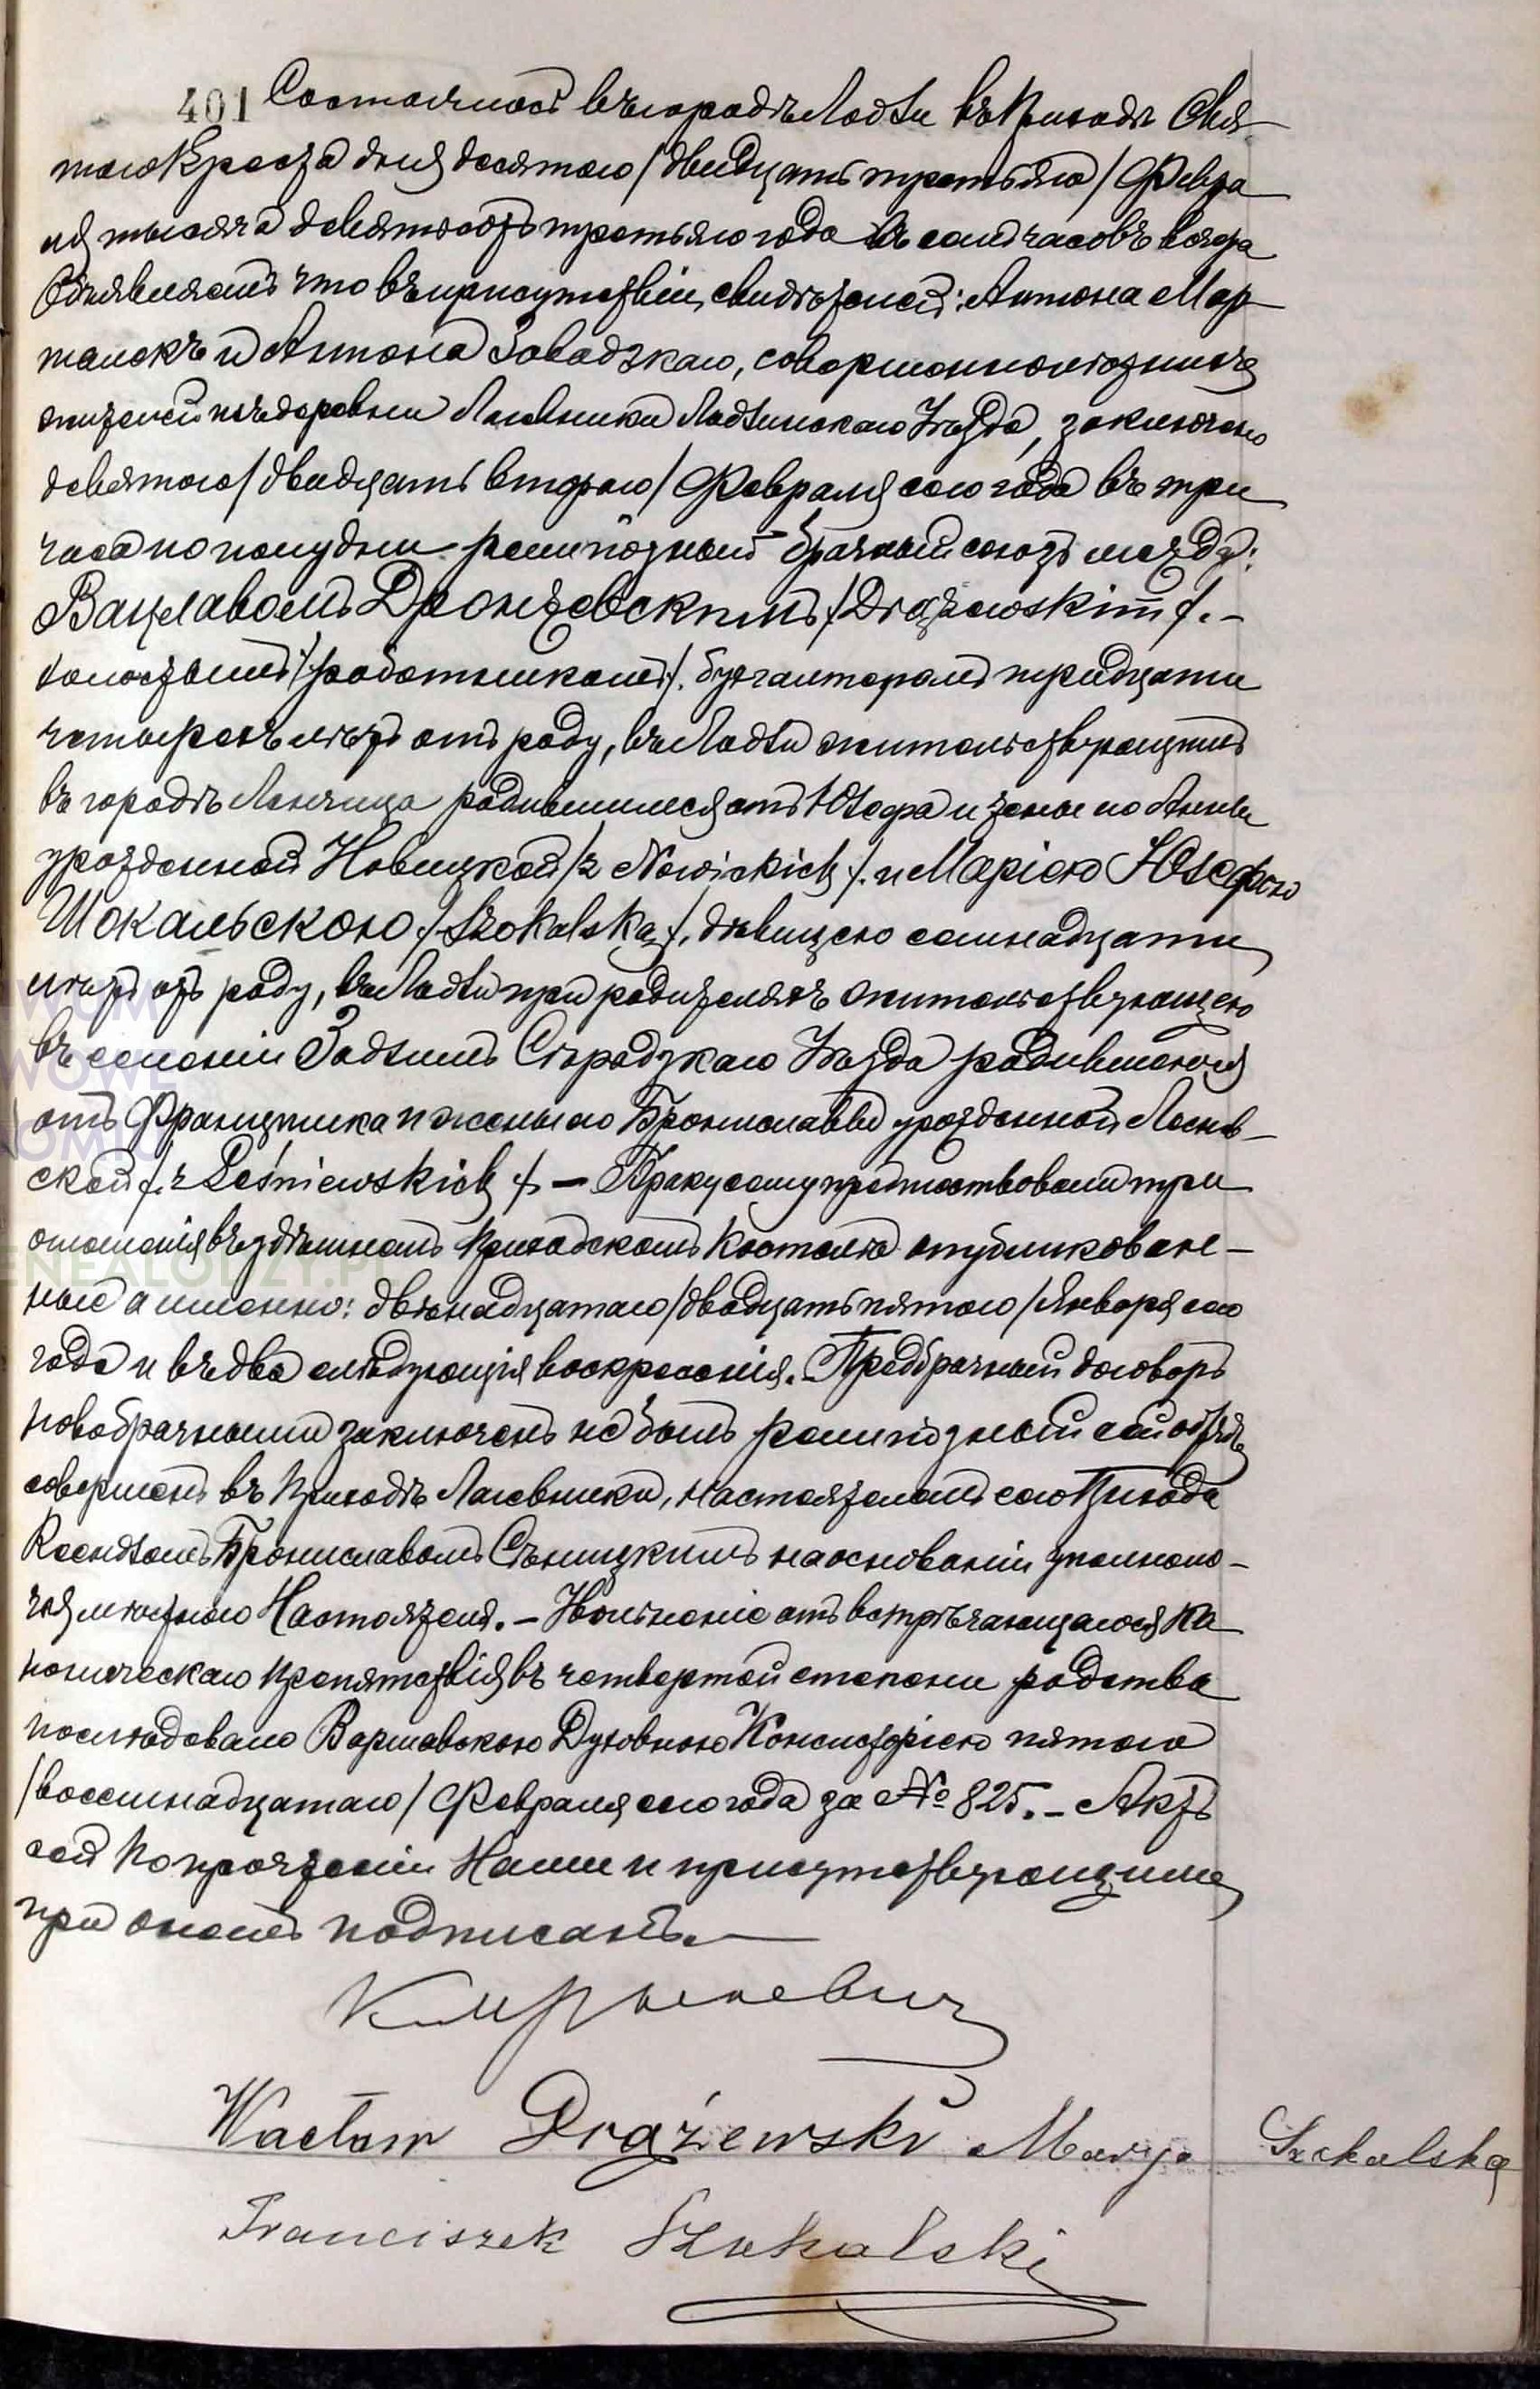 401 Состоялось въ городѣ Лодзи въ Приходѣ Свя-
того Креста дня десятого /двадцать третьяго/ Февра
ля тысяча девятьсотъ третьяго года въ семь часовъ вечера
Объявляемъ что въ присутствіи свидѣтелей: Антона Мар-
 и Антона Завадзкаго, совершеннолѣтнихъ
жителей изъ деревни Лагевники Лодзинскаго Уѣзда, заключено
девятого /двадцать второго/ Февраля сего года въ три
часа по полудни религіозный брачный союзъ между:
Вацлавомъ Дронжевскимъ /Drążewskim/. –
холостымъ /работникомъ/. бухгалтеромъ тридцати
четырехъ лѣтъ отъ роду, въ Лодзи жительствующимъ
въ городѣ Ленчица родившимся отъ Юзефа и жены его Анны
урожденной Новицкой /z Nowickich/. и Маріею Юзефою
Шокальскою /Szokalską/, дѣвицею семнадцати
лѣтъ отъ роду, въ Лодзи при родителяхъ жительствующею
въ селеніи Задзимъ Сѣрадзкаго Уѣзда родившеюся
отъ Францишка и жены его Брониславы урожденной Леснев-
ской /z Leśniewskich/ – Браку сему предшествовали три
оглашенія въ здѣшнемъ Приходскомъ Костелѣ опубликован-
ные а именно: двѣнадцатаго /двадцать пятого/ Января сего
года и въ два слѣдующія воскресенія. Предбрачный договоръ
новобрачными заключенъ не былъ религіозный сей обрядъ
совершенъ въ Приходѣ Лагевники, настоятелемъ сего Прихода
Ксендзомъ Брониславомъ Сѣницкимъ на основаніи уполномо-
чія мѣстного Настоятеля. – Увольненіе отъ встрѣчающагося ка
ноническаго препятствія въ четвертой степени родства
послѣдовало Варшавскою Духовною Консисторіею пятого
/восемнадцатаго/ Февраля сего года за № 825. – Актъ
сей по прочтеніи Нами и присутствующими
при ономъ подписанъ. –
Wacław Drążewski Marya Szokalska
Franciszek Szokalski
WOM
WOWE
OMIC
GENEALODZY.PL